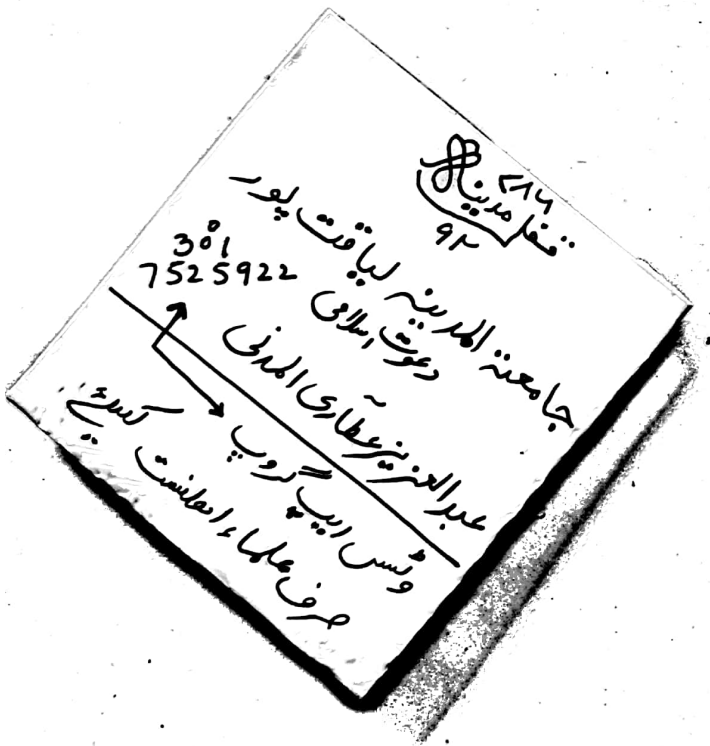 ۷۸۶
قفل مدینہ
۹۲
جامعۃ المدینہ لیاقت پور
دعوت اسلامی
301
7525922
عبدالعزیز عطاری المدنی
وٹس ایپ گروپ
صرف علماء اہلسنت کیلئے